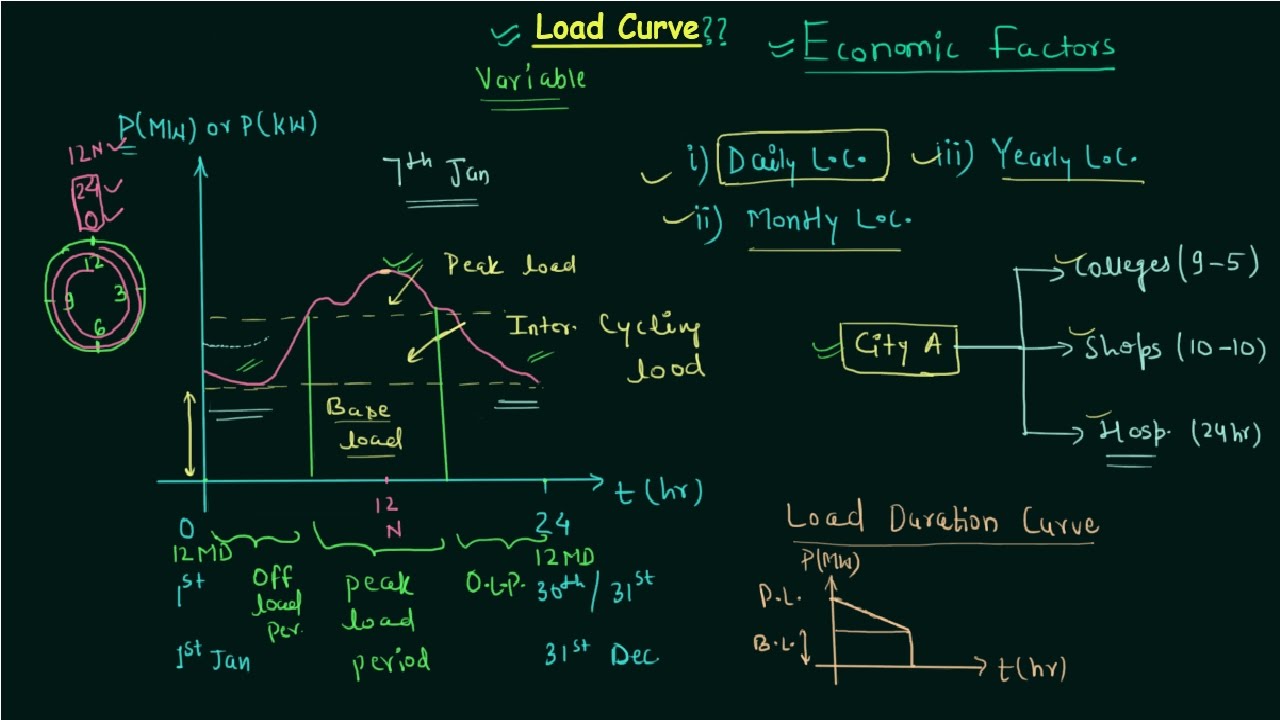 Load Curve??
Economic Factors
Variable
P(MW) or P(KW)
12N
24
0
12
9
3
6
7th Jan
i) Daily L.C.
iii) Yearly L.C.
ii) Montly L.C.
Peak load
Inter. Cycling
load
Base
load
City A
Colleges (9-5)
Shops (10-10)
Hosp. (24hr)
t(hr)
0
12
N
24
12MD
12MD
1st
30th / 31st
Off
load
Per.
peak
load
period
O.L.P.
1st Jan
31st Dec.
Load Duration Curve
P(MW)
P.L.
B.L.
t(hr)